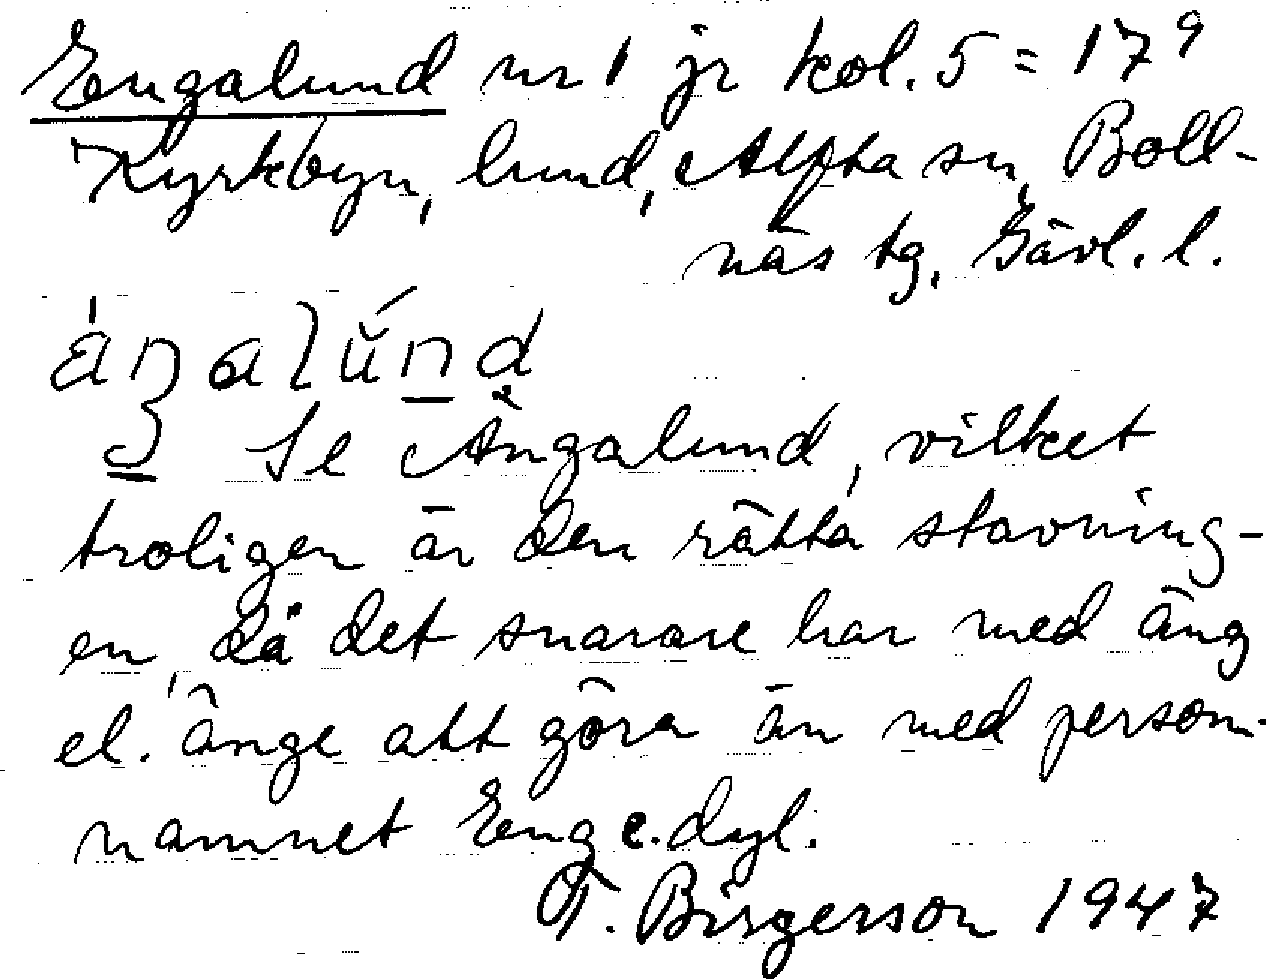 Engalund nr 1 jr kol. 5 = 17⁹
Kyrkbyn, lund, Alfta sn, Boll-
näs tg, Gävl. l.
áŋalúnd
Se Ängalund, vilket
troligen är den rätta stavning-
en, då det snarare har med äng
el. änge att göra än med person-
namnet Eng e.dyl.
T. Birgerson 1947